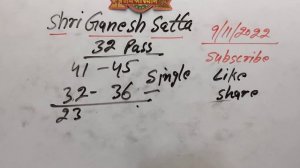 Shri Ganesh Satta
32 Pass
41 - 45
32 - 36 - Single
23
9/11/2022
Subscribe
Like
Share